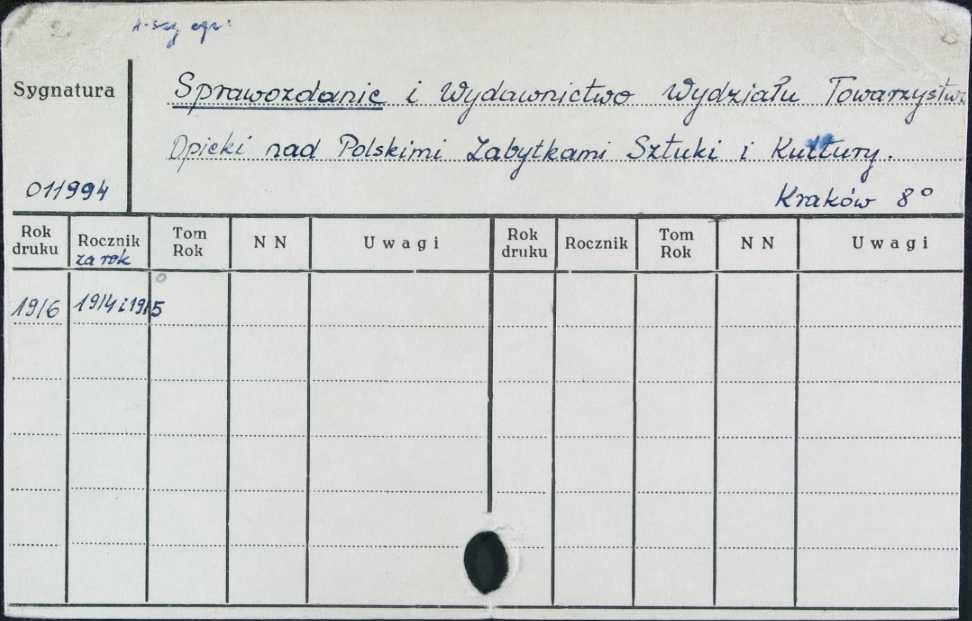 egz:
Sygnatura
Sprawozdanie i Wydawnictwo Wydziału Towarzystwa
Opieki nad Polskimi Zabytkami Sztuki i Kultury.
011994
Kraków 8°
Rok druku Rocznik Tom Rok N N Uwagi Rok druku Rocznik Tom Rok N N Uwagi
za rok
1916 1914 i 1915